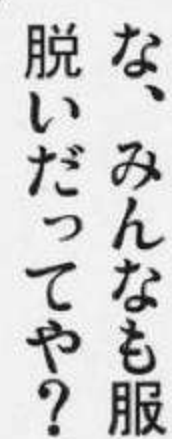 な、みんなも服
脱いだってや？